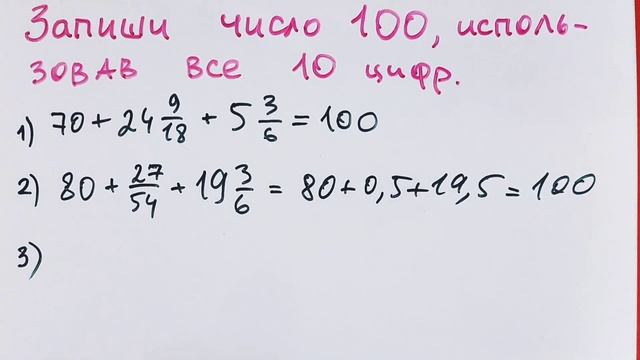 Запиши число 100, исполь-
зовав все 10 цифр.
1) 70 + 24 9/18 + 5 3/6 = 100
2) 80 + 27/54 + 19 3/6 = 80 + 0,5 + 19,5 = 100
3)